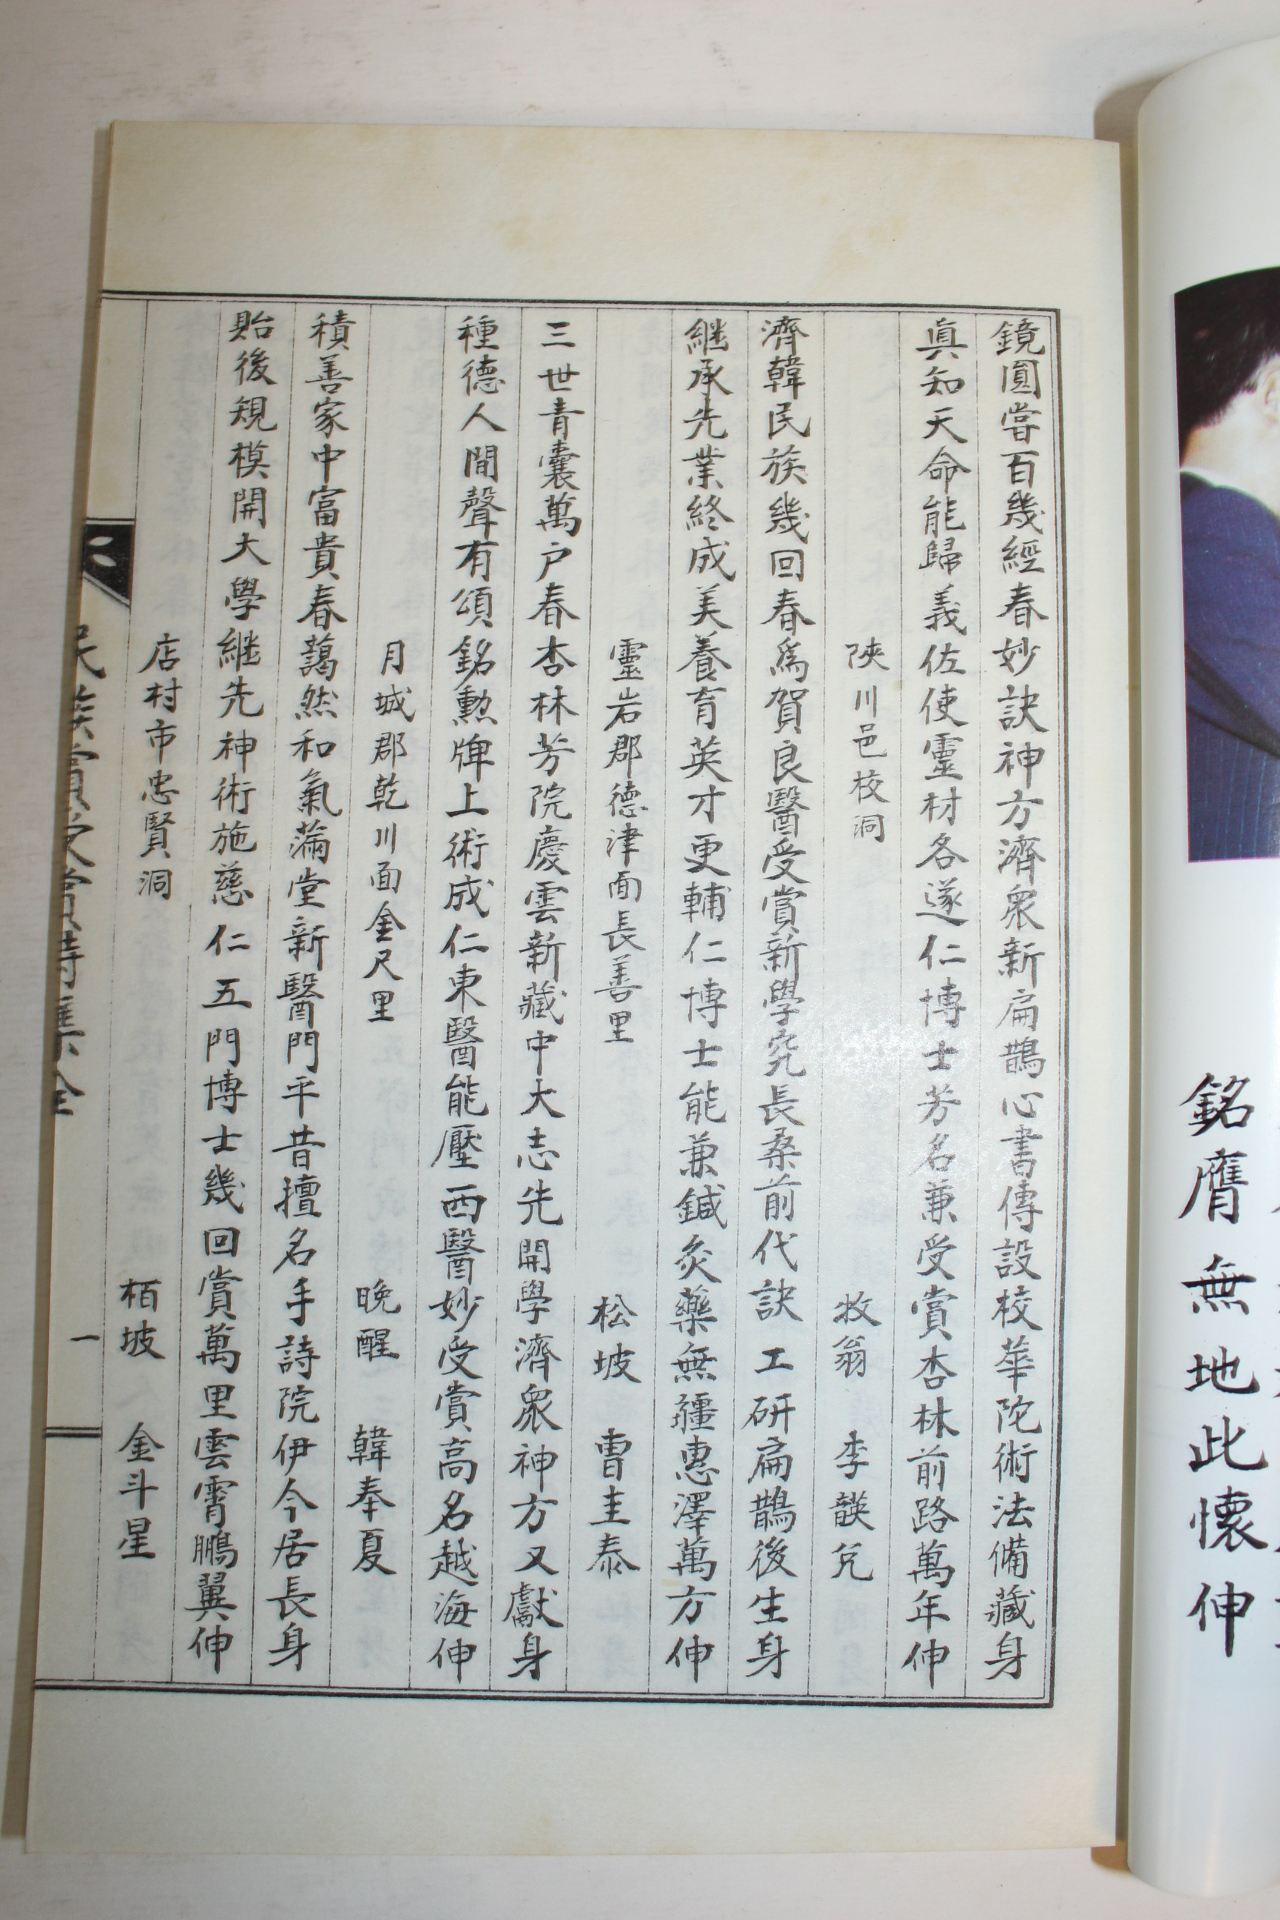 銘膺無地此懷伸
鏡圓嘗百幾經春妙訣神方濟衆新扁鵲心書傳設校華陀術法備藏身
眞知天命能歸義佐使靈材各遂仁博士芳名兼受賞杏林前路萬年伸
陜川邑校洞 牧翁 李
濟韓民族幾回春爲賀良醫受賞新學究長桑前代訣工硏扁鵲後生身
繼承先業終成美養育英才更輔仁博士能兼鍼灸藥無疆惠澤萬方伸
靈岩郡德津面長善里 松坡 曺圭泰
三世青囊萬户春杏林芳院慶雲新藏中大志先開學濟衆神方又獻身
種德人間聲有頌銘勳牌上術成仁東醫能壓西醫妙受賞高名越海伸
月城郡乾川面金尺里 晩醒 韓奉夏
積善家中富貴春藹然和氣滿堂新醫門平昔擅名手詩院伊今居長身
貽後規模開大學繼先神術施慈仁五門博士幾回賞萬里雲霄鵬翼伸
店村市忠賢洞 栢坡 金斗星
民族賞受賞詩集全 一